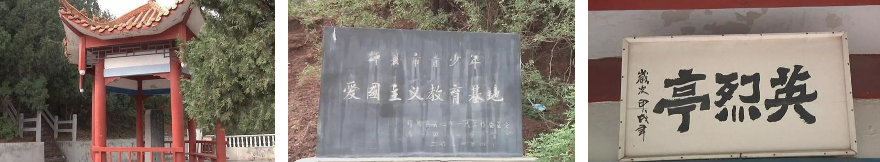 辉县市青少年
愛國主义教育基地
英烈亭
歲次甲戌年